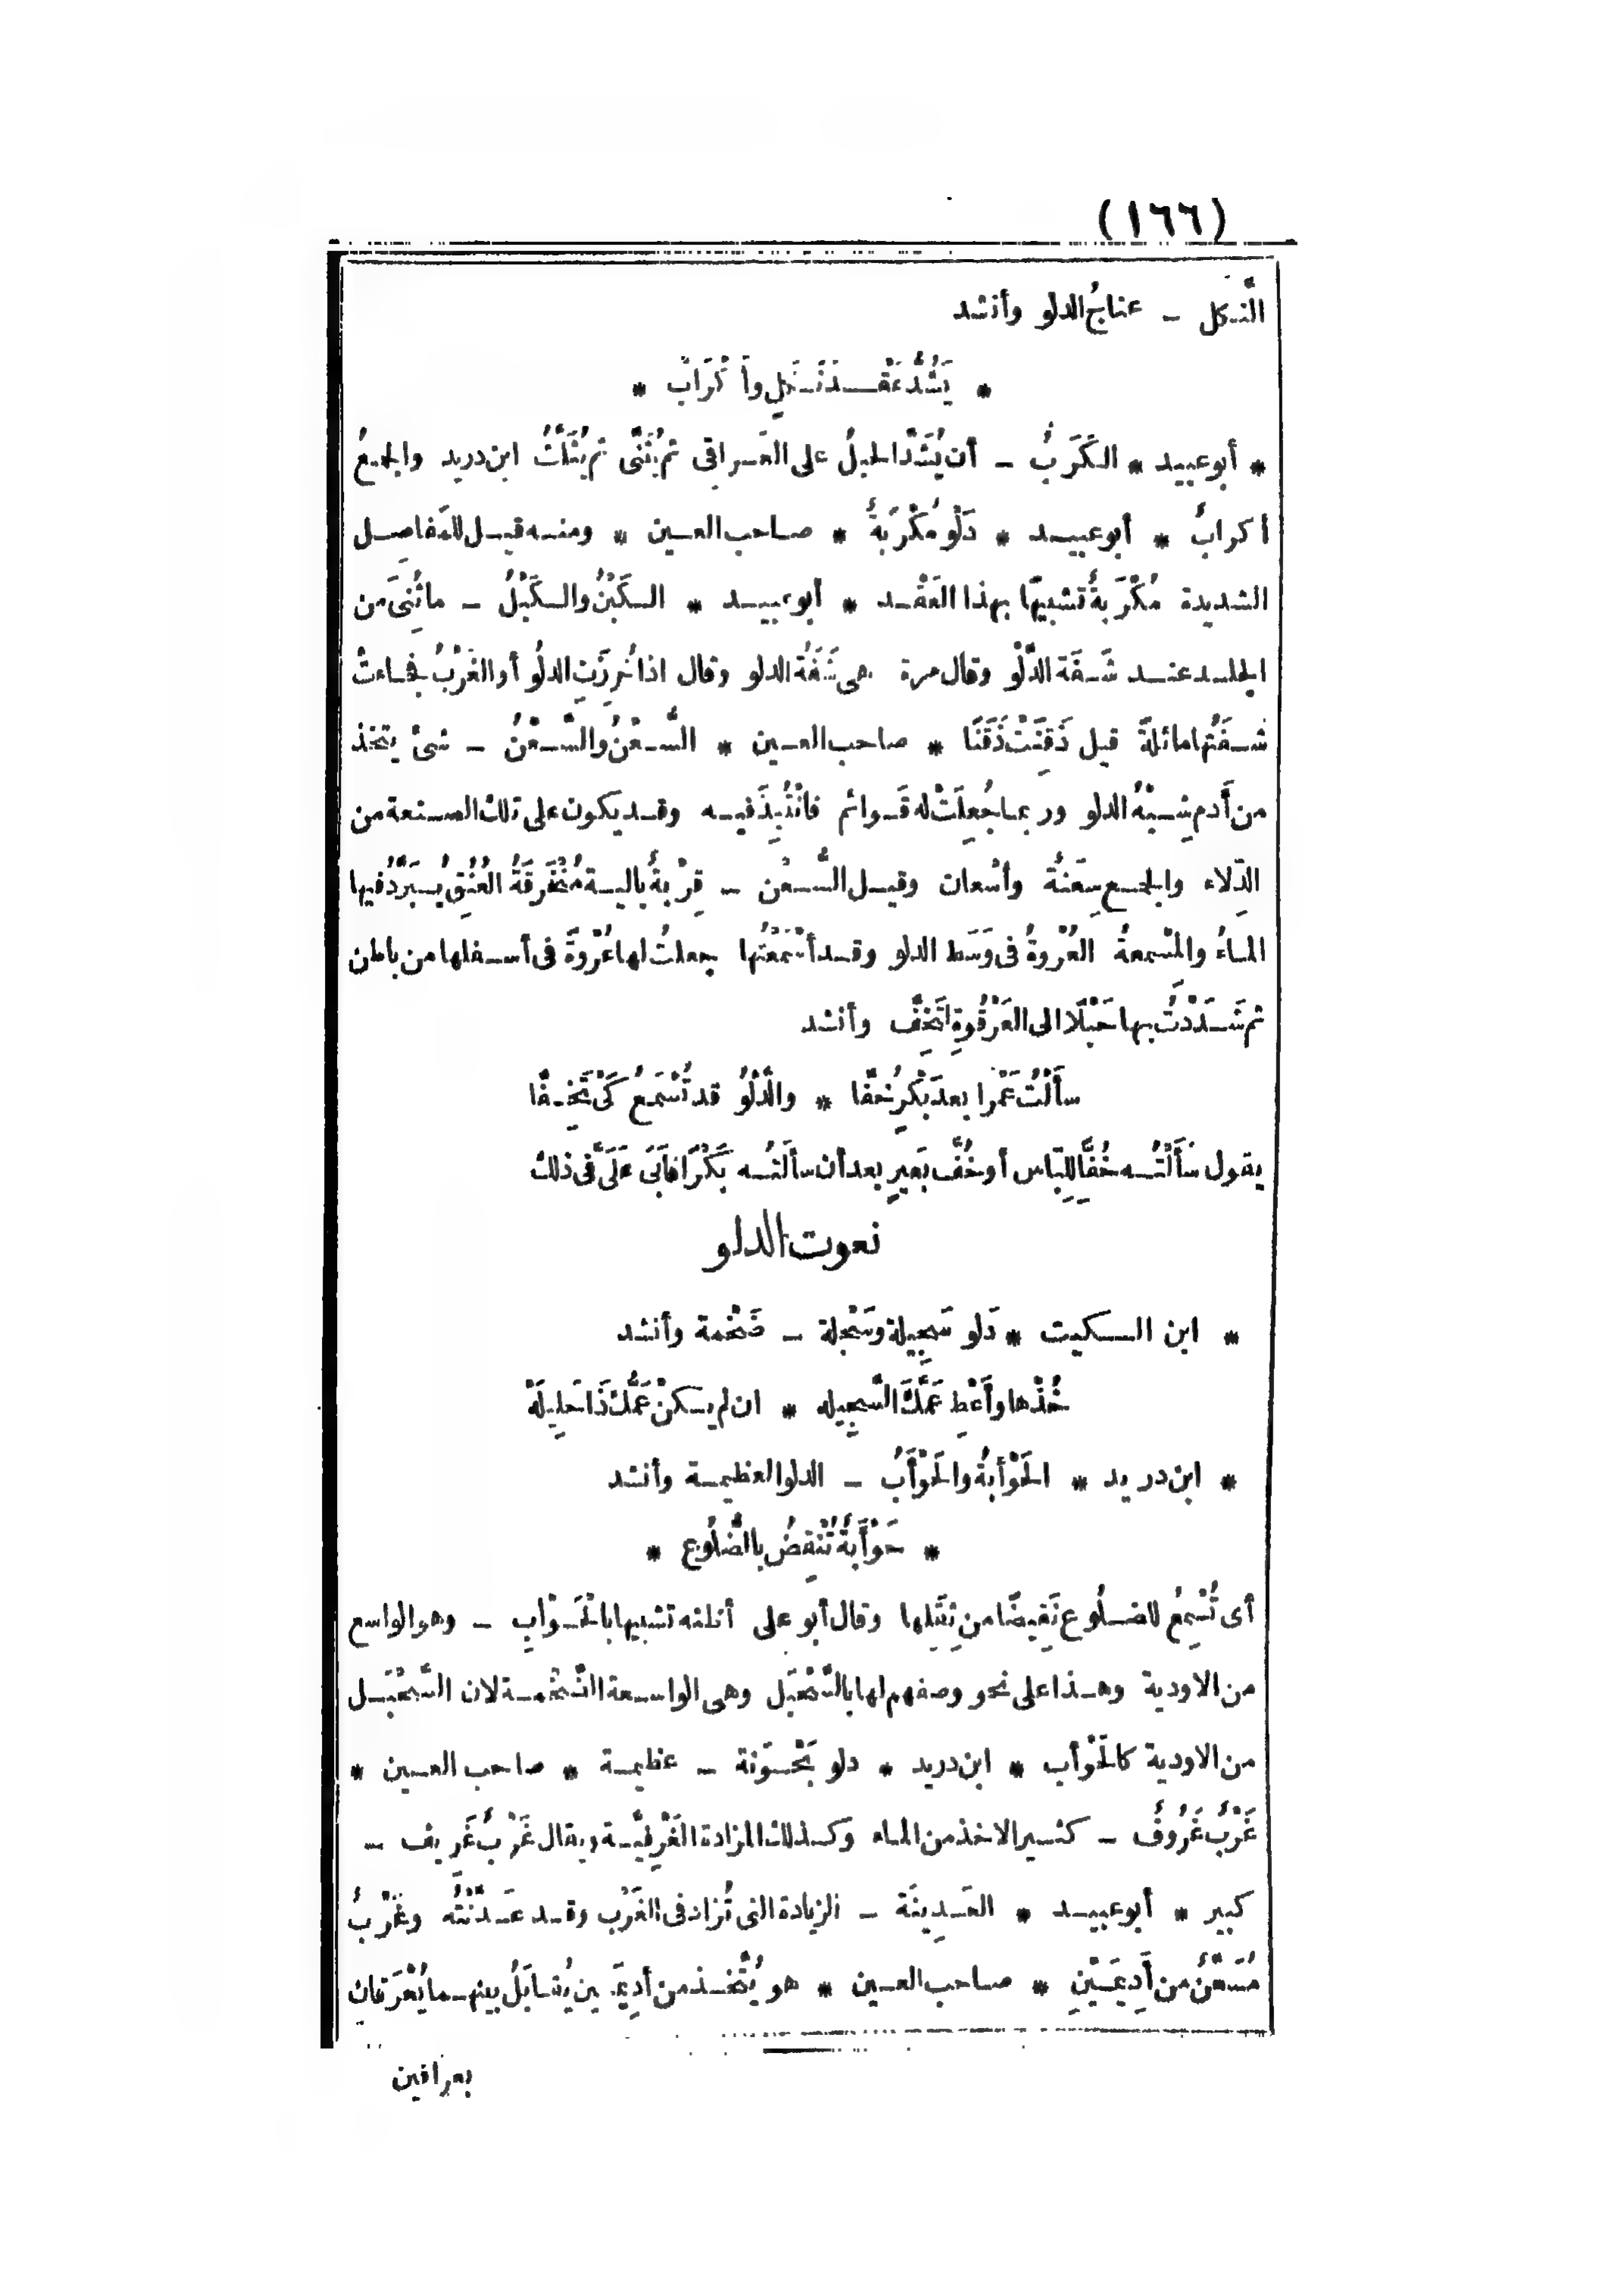 (١٦٦)
النَّكَل - عناجُ الدلو وأنشد
* يَشُدُّ عَقْدَ نَكَلٍ وأَكْرَابْ *
* أبو عبيد * الكَرَبُ - أن يُشَدَّ الحبلُ على العَراقِى ثم يُثَنَّى ثم يُثَلَّثُ ابن دريد والجمعُ
أكرابٌ * أبو عبيد * دَلْوٌ مُكْرَبةٌ * صاحب العين * ومنه قيل للمَفاصِل
الشديدة مُكْرَبةٌ تشبيهًا بهذا العَقْد * أبو عبيد * الكَبْنُ والكَبْلُ - ما ثُنِىَ من
الجلد عند شَفَة الدَّلْو وقال مرة هى شَفَةُ الدلو وقال اذا خُرِزَتِ الدلُو أو الغَرْبُ فجاءتْ
شَفَتُها مائلةً قيل ذَقِنَتْ ذَقَنًا * صاحب العين * السَّعْنُ والسُّعْنُ - شئ يتخذ
من أَدَم شِبْهُ الدلو وربما جُعِلَتْ له قَوائم فانْتُبِذَ فيه وقد يكون على تلك الصنعة من
الدِّلاء والجمع سِعَنةٌ وأسْعان وقيل السُّعْن - قِرْبةٌ بالية مُنْخَرِقَةُ العُنُقِ يُبَرَّدُ فيها
الماءُ والمِسْمعةُ العُرْوةُ فى وَسَط الدلو وقد أَسْمَعْتُها جعلتُ لها عُرْوةً فى أسفلها من باطن
ثم شَدَدْتُ بها حَبْلًا الى العَرْقُوةِ لتَخِفَّ وأنشد
سأَلْتُ عَمْرًا بعدَ بَكْرٍ خُفَّا * والدَّلْوُ قد تُسْمَعُ كَىْ تَخِفَّا
يقول سَأَلْتُه خُفًّا للِّبَاس أو خُفَّ بَعِيرٍ بعد أن سألتُه بَكْرًا فأَبَى عَلَىَّ فى ذلك
نعوت الدلو
* ابن السكيت * دَلو سَجِيلة وسَجْلة - ضَخْمة وأنشد
خُذْها وأَعْطِ عَمَّكَ السَّجِيلهْ * ان لم يكنْ عَمُّكَ ذَا حَلِيلَهْ
* ابن دريد * الحَوْأبةُ والحَوْأَبُ - الدلو العظيمة وأنشد
* حَوْأَبةٌ تُنْقِضُ بالضُّلُوع *
أى تُسْمِعُ للضلُوع نَقِيضًا من ثِقَلِها وقال أبو على أظنه تشبيها بالحَوْأبِ - وهو الواسع
من الاودية وهذا على نحو وصفهم لها بالسَّحْبَل وهى الواسعة الضَّخْمة لان السَّحْبَل
من الاودية كالحَوْأب * ابن دريد * دلو بَحْوَنة - عظيمة * صاحب العين *
غَرْبٌ غَرُوفٌ - كثير الاخذ من الماء وكذلك المزادة الغَرْفِيَّة ويقال غَرْبٌ غَرِيف -
كبير * أبو عبيد * العَدِينَة - الزيادة التى تُزاد فى الغَرْب وقد عَدَّنْتُه وغَرْبٌ
مُسَعَّنٌ من أَدِيمَيْنِ * صاحب العين * هو يُتَّخذ من أدِيمَيْن يُقابَلُ بينهما يُعْرَقان
بعراقين